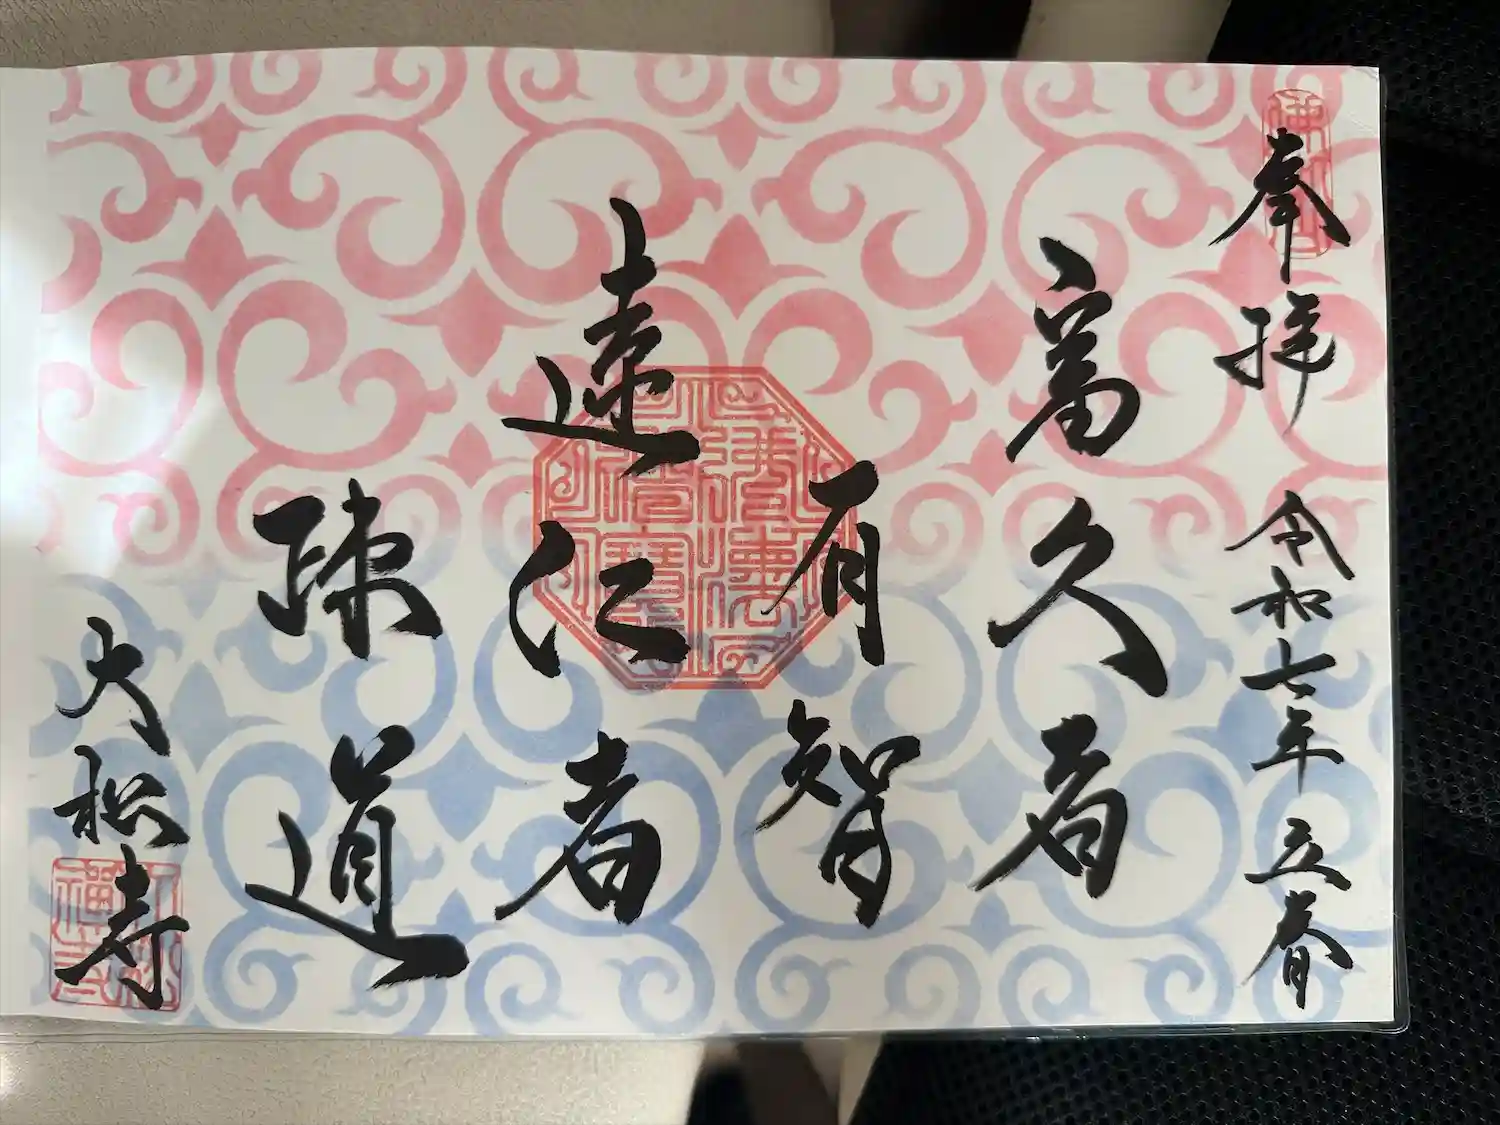 奉拝 令和七年 立春
富久者
有智
遠仁者
疎道
大松寺